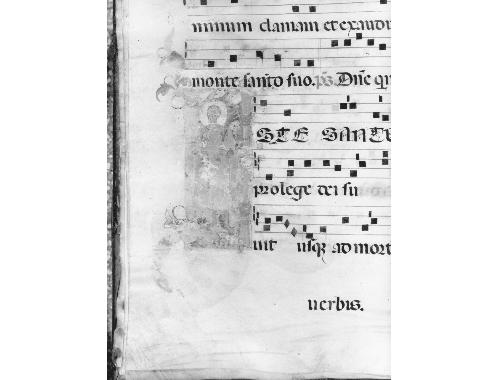 minum clamaui et exaudi
monte sancto suo. ps. Dñe qu
STE SANCT
prolege dei su
uit usqz ad mort
uerbis.